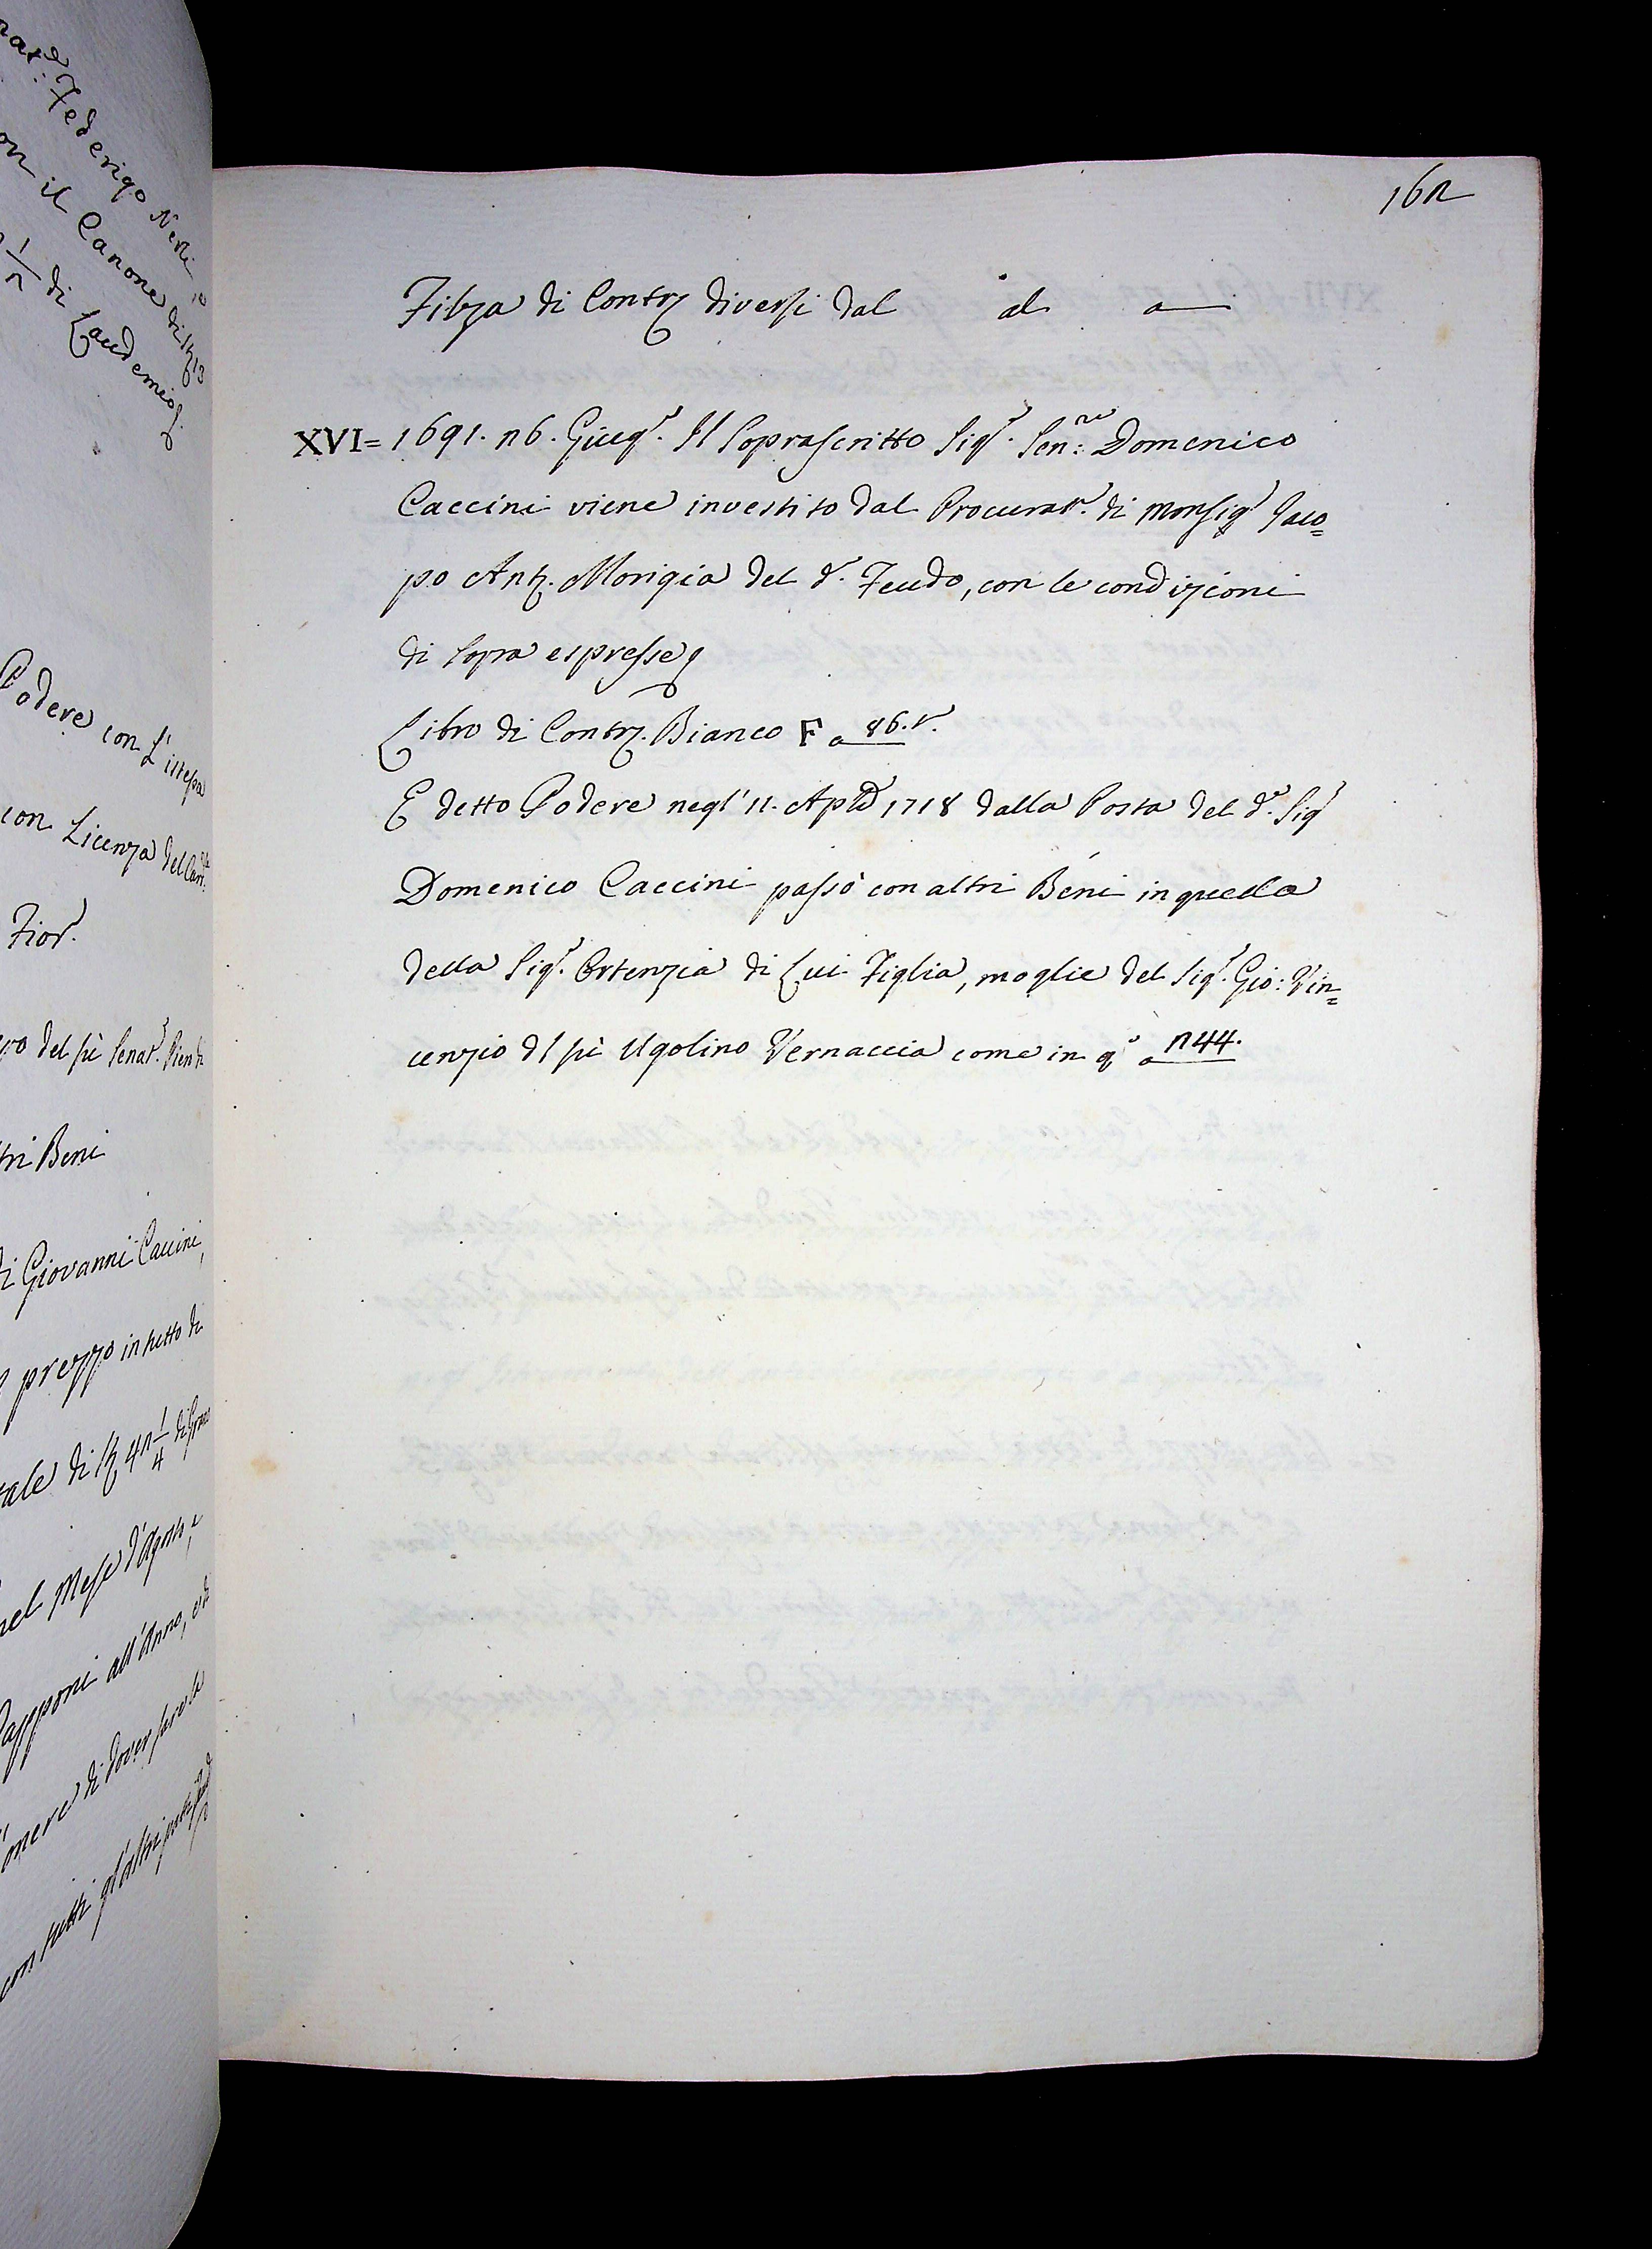 nat:re Federigo Nerli
il Canone di
1/2 di Laudemio
Podere con l'istessa
con Licenza del
Fior.
del fù Senat.r
tri Beni
di Giovanni Caccini,
prezzo in tutto di
di 42 1/4 di Grano
nel Mese d'Agosto, e
Capponi all'Anno,
onere di dover fare le
con tutti gl'altri patti
162
Filza di Contr. diversi dal al a
XVI= 1691. 26. Giug.o Il Soprascritto Sig.r Sen:re Domenico
Caccini viene investito dal Procurat.r di Monsig.r Jaco=
po Ant. Morigia del d.o Feudo, con le condizioni
di Sopra espresse
Libro di Contr. Bianco F a 86.t.
E detto Podere negl' 11. Aple 1718 dalla Posta del d.o Sig.r
Domenico Caccini passò con altri Beni in quella
della Sig.ra Ortenzia di Lui Figlia, moglie del Sig.r Gio: Vin=
cenzio dl fù Ugolino Vernaccia come in q.o a 244.